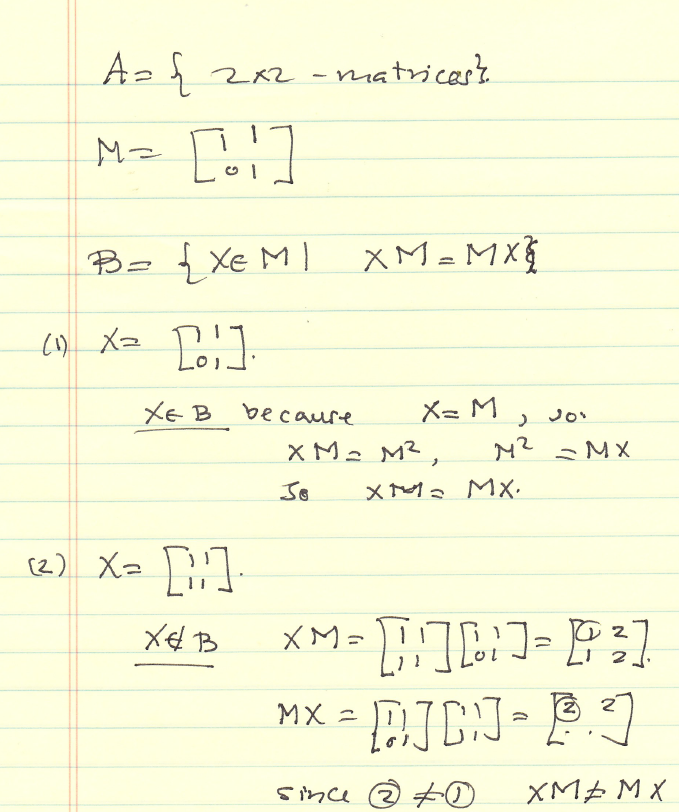 A = { 2x2 - matrices}.
M = [1 1
0 1]
B = { X ∈ M | XM = MX}
(1) X = [1 1
0 1].
X ∈ B because X = M, so.
XM = M², M² = MX
So XM = MX.
(2) X = [1 1
1 1].
X ∉ B XM = [1 1 [1 1 = [① 2
1 1] 0 1] 1 2].
MX = [1 1 [1 1 = [② 2
0 1] 1 1] . .]
since ② ≠ ① XM ≠ MX